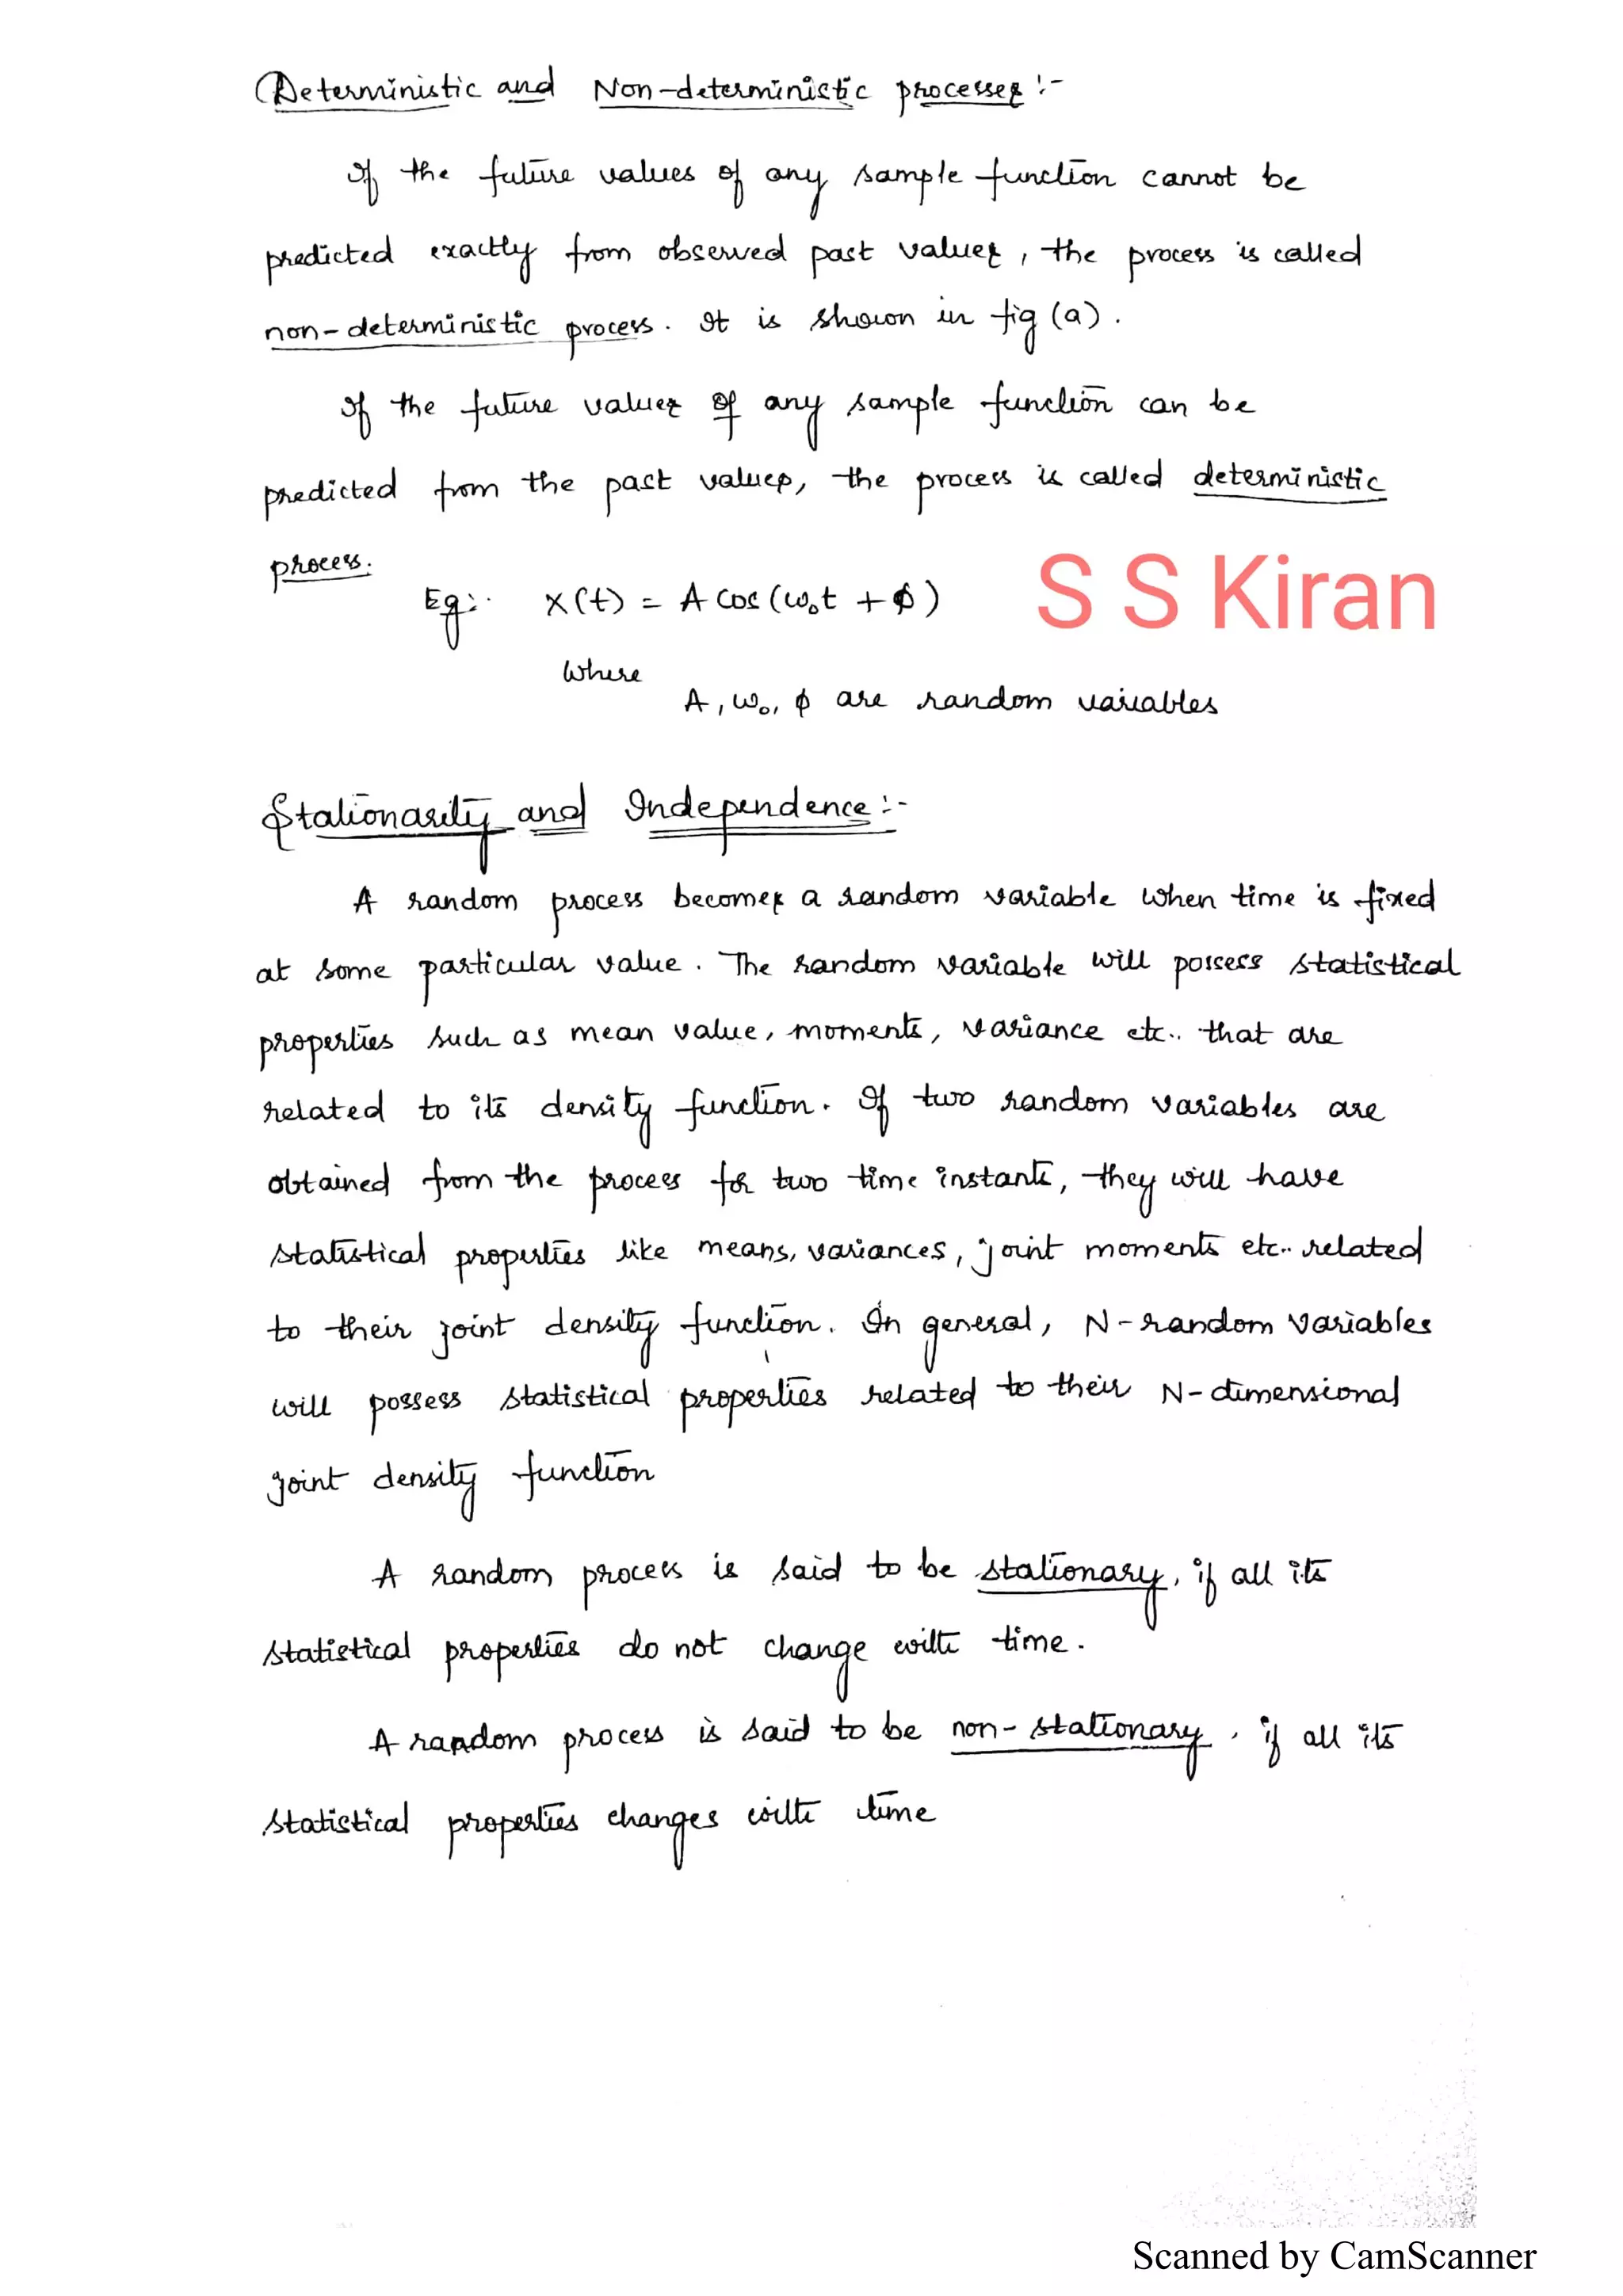 Deterministic and Non-deterministic processes :-
If the future values of any sample function cannot be
predicted exactly from observed past values, the process is called
non-deterministic process. It is shown in fig (a).
If the future values of any sample function can be
predicted from the past values, the process is called deterministic
process.
Eg:- X(t) = A cos(ω₀t + φ)
S S Kiran
Where
A, ω₀, φ are random variables
Stationarity and Independence :-
A random process becomes a random variable when time is fixed
at some particular value. The random variable will possess statistical
properties such as mean value, moments, variance etc.. that are
related to its density function. If two random variables are
obtained from the process for two time instants, they will have
statistical properties like means, variances, joint moments etc.. related
to their joint density function. In general, N-random variables
will possess statistical properties related to their N-dimensional
joint density function
A random process is said to be stationary, if all its
statistical properties do not change with time.
A random process is said to be non-stationary, if all its
statistical properties changes with time
Scanned by CamScanner